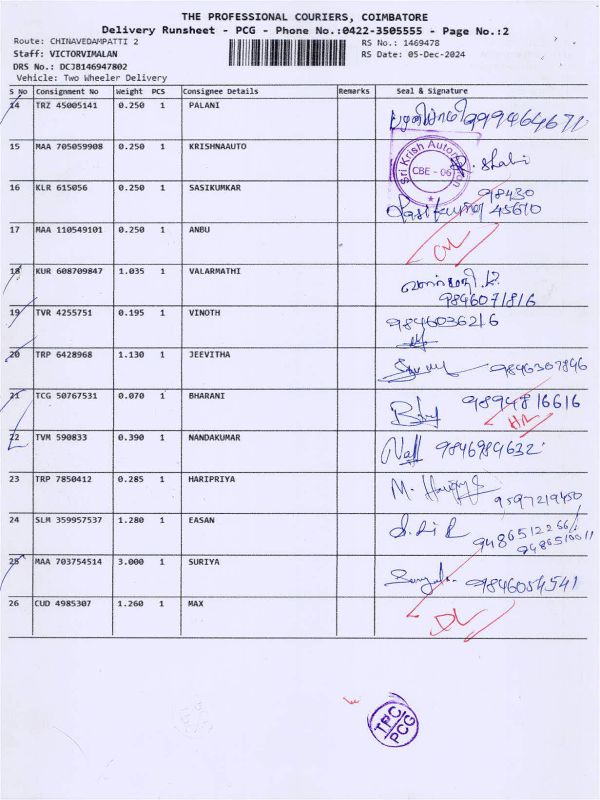 THE PROFESSIONAL COURIERS, COIMBATORE
Delivery Runsheet - PCG - Phone No.:0422-3505555 - Page No.:2
Route: CHINAVEDAMPATTI 2
RS No.: 1469478
Staff: VICTORVIMALAN
RS Date: 05-Dec-2024
DRS No.: DCJ8146947802
Vehicle: Two Wheeler Delivery
S No Consignment No Weight PCS Consignee Details Remarks Seal & Signature
14 TRZ 45005141 0.250 1 PALANI
15 MAA 705059908 0.250 1 KRISHNAAUTO
Sri Krish Automation
CBE - 06
16 KLR 615056 0.250 1 SASIKUMKAR 98430
45610
17 MAA 110549101 0.250 1 ANBU
18 KUR 608709847 1.035 1 VALARMATHI
9846071816
19 TVR 4255751 0.195 1 VINOTH 9846036216
20 TRP 6428968 1.130 1 JEEVITHA 9846307846
21 TCG 50767531 0.070 1 BHARANI 9894816616
22 TVM 590833 0.390 1 NANDAKUMAR 9846984632
23 TRP 7850412 0.285 1 HARIPRIYA
9597219450
24 SLM 359957537 1.280 1 EASAN
25 MAA 703754514 3.000 1 SURIYA 9846054541
26 CUD 4985307 1.260 1 MAX DL
TPC
PCG